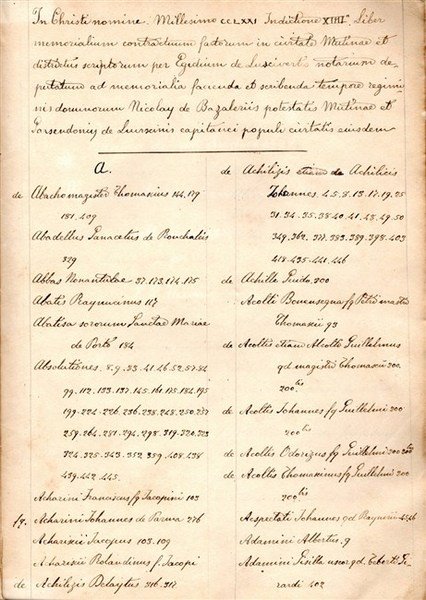 In Christi nomine. Millesimo CCLXXI Indictione XIIII Liber
memorialium contractuum factorum in civitate Mutinae et
districtus scriptorum per Egidium de notarium de-
putatum ad memorialia facienda et scribenda tempore regimi-
nis domnorum Nicolay de Bazaleriis potestatis Mutinae et
de capitanei populi civitatis eiusdem
A.
de Abachomagistro Thomaxius 144, 179
181. 409
Abadellus Panacetus de Ronchaliis
329
Abbas Nonantulae 37. 173. 174. 175
Abatis Raynucinus 117
Abatisa sororum Sanctae Mariae
de Porto 184
Absolutiones. 8. 9. 33. 41. 46. 52. 57. 84
99. 112. 133. 137. 145. 161. 175. 184. 195
199. 224. 226. 236. 238. 248. 250. 257
259. 264. 281. 294. 298. 319. 320. 323
324. 325. 343. 352. 389. 408. 438
439. 442. 443.
Acharini Franciscus fq Jacopinii 103
fq. Acharini Johannes de Parma 276
Acharixii Jacopus 103. 109
Acharixii Rolandinus f. Jacopi
de Achilizis Delaytus 316. 317
de Achilizis etiam de Achilicis
Johannes. 4. 5. 8. 13. 17. 19. 25
31. 34. 35. 38. 40. 41. 43. 49. 50
349. 362. 377. 383. 389. 398. 403
418. 435. 441. 446
de Achille Guido. 200
Acolti Bonensegna fq Petri mastri
Thomaxii 93
de Acoltis etiam Alcolti Guillelmus
qd magistri Thomaxii 200.
200bis
de Acoltis Johannes fq Guillelmi 200
200bis
de Acoltis Odorizus fq Guillelmi 200 200bis
de Acoltis Thomaxinus fq Guillelmi 200
200bis
Acspettati Johannes qd Raynerii
Adamini Albertus, 9
Adamini Gisilla uxor qd Ceberti Gi-
rardi 402